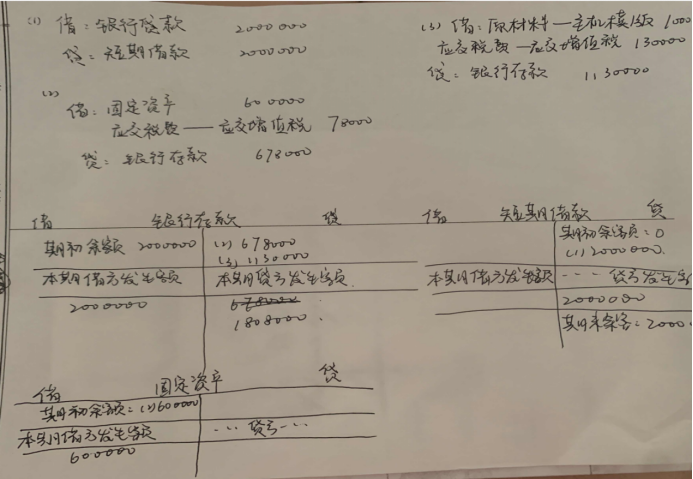 (1) 借：银行贷款 2000000
贷：短期借款 2000000
(2)
借：固定资产 600000
应交税费——应交增值税 78000
贷：银行存款 678000
(3) 借：原材料—主机模级 1000
应交税费—应交增值税 130000
贷：银行存款 1130000
借 银行存款 贷
期初余额 2000000 (2) 678000
(3) 1130000
本期借方发生额 本期贷方发生额
2000000 678000
1808000
借 短期借款 贷
期初余额：0
(1) 2000000
本期借方发生额 … 贷方发生
2000000
期末余额：2000
借 固定资产 贷
期初余额：(2) 600000
本期借方发生额 … 贷方 …
600000